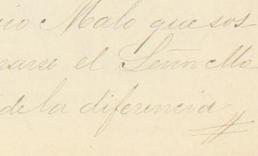 cio Malo que sos
narse el Señor Mo
de la diferencia